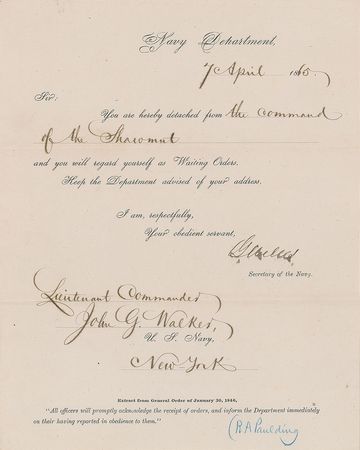 Navy Department,
7 April 1865.
Sir:
You are hereby detached from the command
of the Shawmut
and you will regard yourself as Waiting Orders.
Keep the Department advised of your address.
I am, respectfully,
Your obedient servant,
G Welles
Secretary of the Navy.
Lieutenant Commander
John G. Walker,
U. S. Navy,
New-York
Extract from General Order of January 30, 1846.
"All officers will promptly acknowledge the receipt of orders, and inform the Department immediately
on their having reported in obedience to them."
(R A Paulding)